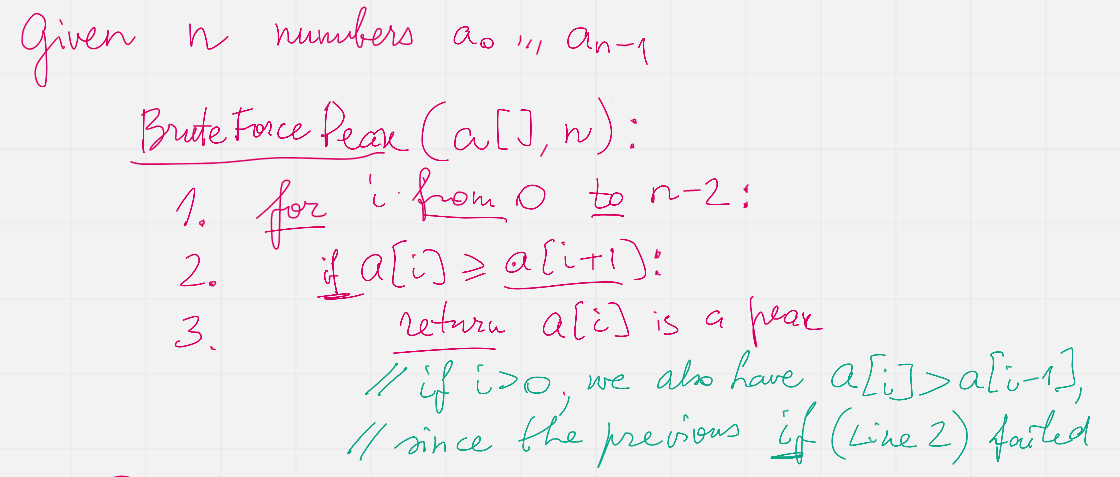 Given n numbers a₀ ,,, aₙ₋₁
BruteForcePeak (a[], n):
1. for i from 0 to n-2:
2. if a[i] ≥ a[i+1]:
3. return a[i] is a peak
// if i>0, we also have a[i]>a[i-1],
// since the previous if (Line 2) failed